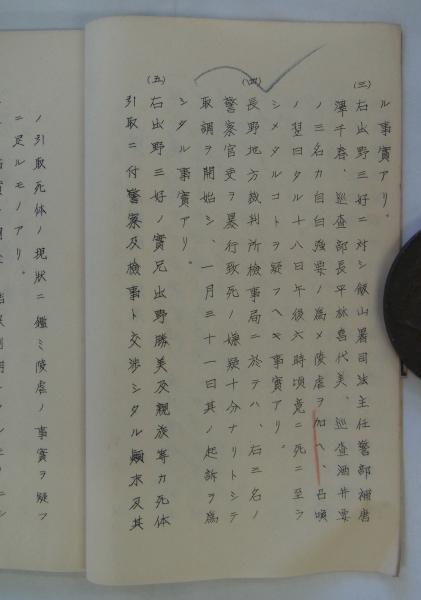 ル事實アリ。
(三) 右出野三好ニ対シ飯山署司法主任警部補唐
澤千春、巡査部長平林喜代美、巡査酒井要
ノ三名カ自白強要ノ為メ陵虐ヲ加ヘ、
ノ翌日タル十八日午後六時頃竟ニ死ニ至ラ
シメタルコトヲ疑フヘキ事實アリ。
(四) 長野地方裁判所検事局ニ於テハ、右三名ノ
警察官吏ヲ暴行致死ノ嫌疑十分ナリトシテ
取調ヲ開始シ、一月三十一日其ノ起訴ヲ為
シタル事實アリ。
(五) 右出野三好ノ實兄出野勝美及親族等カ死体
引取ニ付警察及検事ト交渉シタル顛末及其
ノ引取死体ノ現状ニ鑑ミ陵虐ノ事實ヲ疑フ
ニ足ルモノアリ。